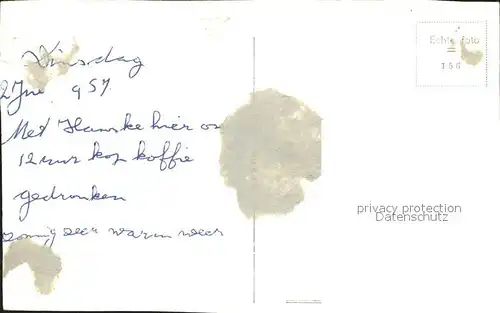 Dinsdag
2 Jui 957
Met Hanske hier om
12 uur kop koffie
gedronken
zonnig zeer warm weer
Echte foto
=
156
privacy protection
Datenschutz